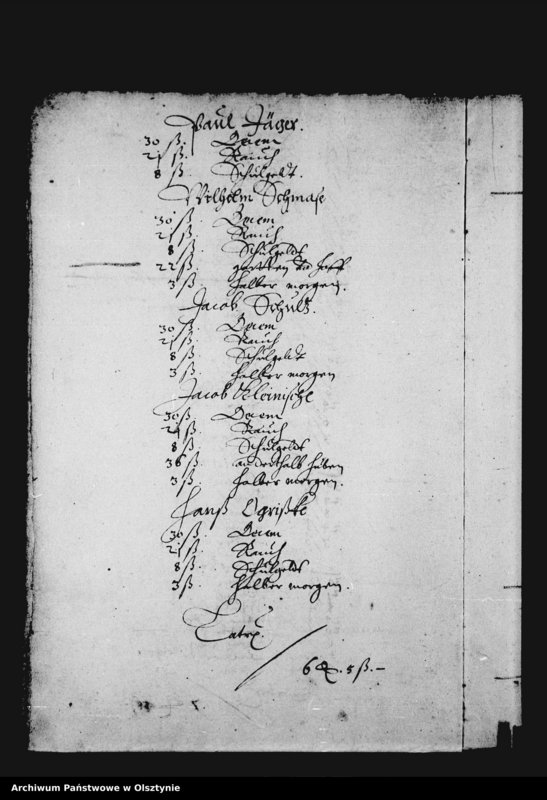 Paul Jäger.
30 ß. Decem
21 ß. Rauch
8 ß Schulgeldt.
Wilhelm Schmase
30 ß. Decem
21 ß. Rauch
8 ß. Schulgeldt
22 ß.
3 ß. halber morgen.
Jacob Schultz.
30 ß. Decem
21 ß. Rauch
8 ß Schulgeldt
3 ß. halber morgen
Jacob Kleinischke
30 ß. Decem
21 ß. Rauch
8 ß. Schulgeldt
36 ß. anderthalb huben
3 ß. halber morgen.
Hanß
30 ß. Decem
21 ß. Rauch
8 ß. Schulgeldt
3 ß. halber morgen.
Latus
6 5 ß. –
Archiwum Państwowe w Olsztynie